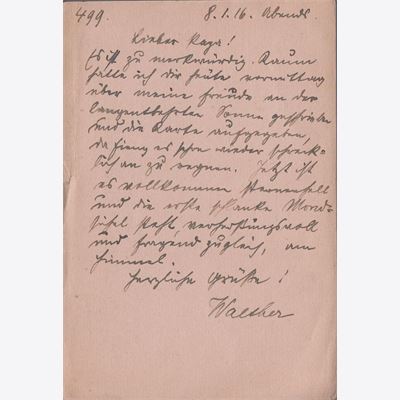 499. 8.1.16. Abends.
Lieber Papa!
Es ist zu merkwürdig. Kaum
hatte ich dir heute vormittag
über meine Freude an der
langentbehrten Sonne geschrieben
und die Karte aufgegeben,
da fieng es schon wieder schreck-
lich an zu regnen. Jetzt ist
es vollkommen sternenhell
und die erste schlanke Mond-
sichel steht, verheißungsvoll
und fragend zugleich, am
Himmel.
Herzliche Grüße!
Walther